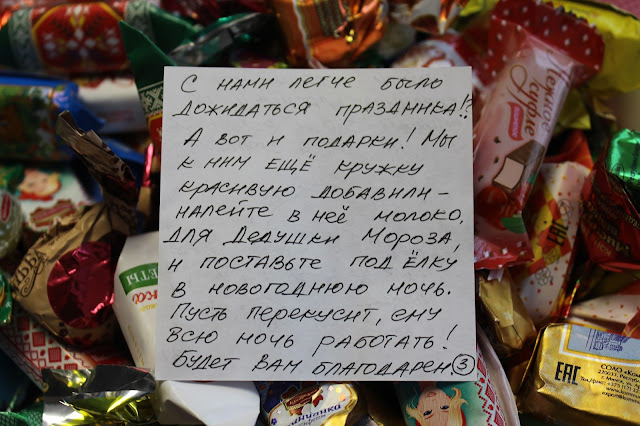 С НАМИ ЛЕГЧЕ БЫЛО
ДОЖИДАТЬСЯ ПРАЗДНИКА!?
А ВОТ И ПОДАРКИ! МЫ
К НИМ ЕЩЁ КРУЖКУ
КРАСИВУЮ ДОБАВИЛИ –
НАЛЕЙТЕ В НЕЁ МОЛОКО,
ДЛЯ ДЕДУШКИ МОРОЗА,
И ПОСТАВЬТЕ ПОД ЁЛКУ
В НОВОГОДНЮЮ НОЧЬ.
ПУСТЬ ПЕРЕКУСИТ, ЕМУ
ВСЮ НОЧЬ РАБОТАТЬ!
БУДЕТ ВАМ БЛАГОДАРЕН 3
Нежное
суфле
ЕАС
СОАО «Ком